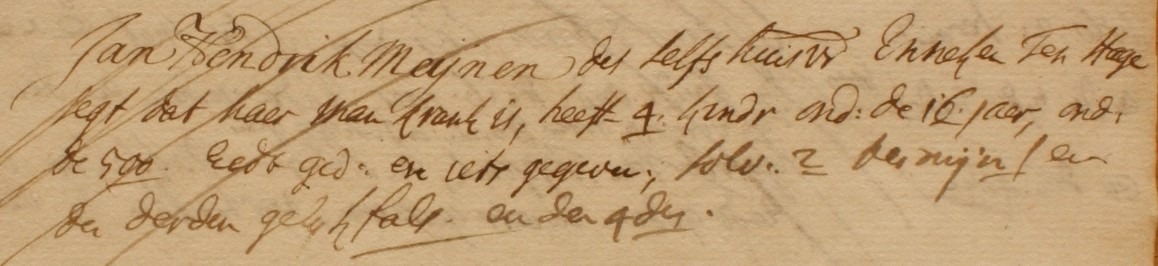 Jan Hendrik Meijnen des selfs huisvr Enneken Ten Hage
segt dat haer man krank is, heeft 4. kindr ond: de 16. jaer, ond.
de 500. Eedt ged: en iets gegeven, solv: 2 termijn / en
den derden gelijkfals. en den 4den.